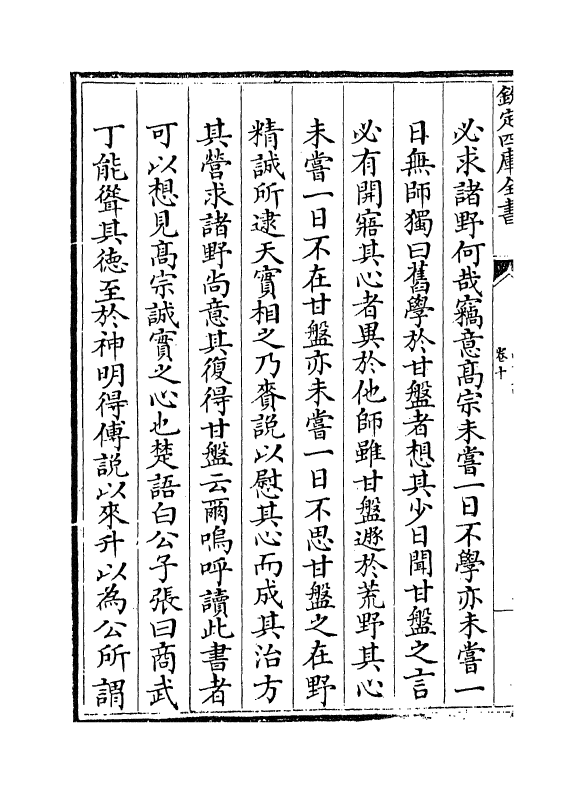 欽定四庫全書
卷十
必求諸野何哉竊意髙宗未嘗一日不學亦未嘗一
日無師獨曰舊學於甘盤者想其少日聞甘盤之言
必有開寤其心者異於他師雖甘盤遯於荒野其心
未嘗一日不在甘盤亦未嘗一日不思甘盤之在野
精誠所逮天實相之乃賚説以慰其心而成其治方
其營求諸野尚意其復得甘盤云爾嗚呼讀此書者
可以想見髙宗誠實之心也楚語白公子張曰商武
丁能聳其徳至於神明得傅説以來升以為公所謂